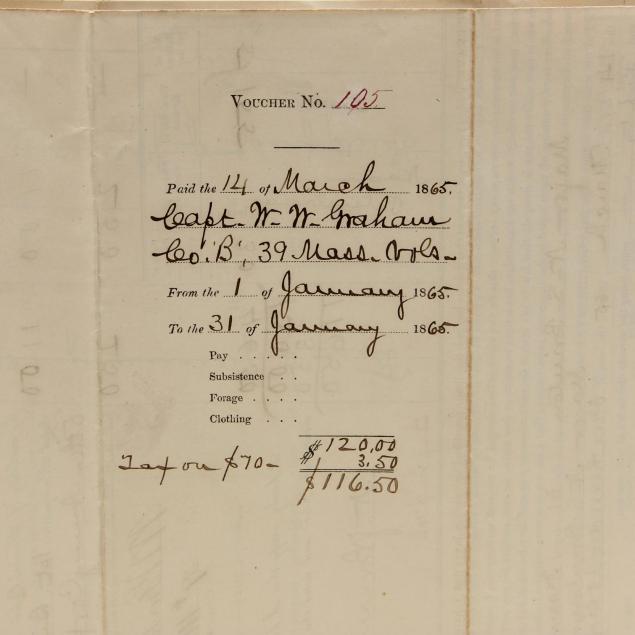 VOUCHER NO. 105
Paid the 14 of March 1865.
Capt. W. W. Graham
Co. 'B', 39 Mass. Vols.
From the 1 of January 1865.
To the 31 of January 1865.
Pay . . . . .
Subsistence . .
Forage . . . .
Clothing . . .
$120.00
Tax on $70- 3.50
$116.50